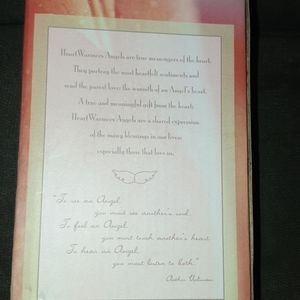 HeartWarmers Angels are true messengers of the heart.
They portray the most heartfelt sentiments and
send the purest love the warmth of an Angel's heart.
A true and meaningful gift from the heart;
HeartWarmers Angels are a shared expression
of the many blessings in our lives;
especially those that love us.
"To see an Angel,
you must see another's soul.
To feel an Angel,
you must touch another's heart.
To hear an Angel,
you must listen to both."
Author Unknown